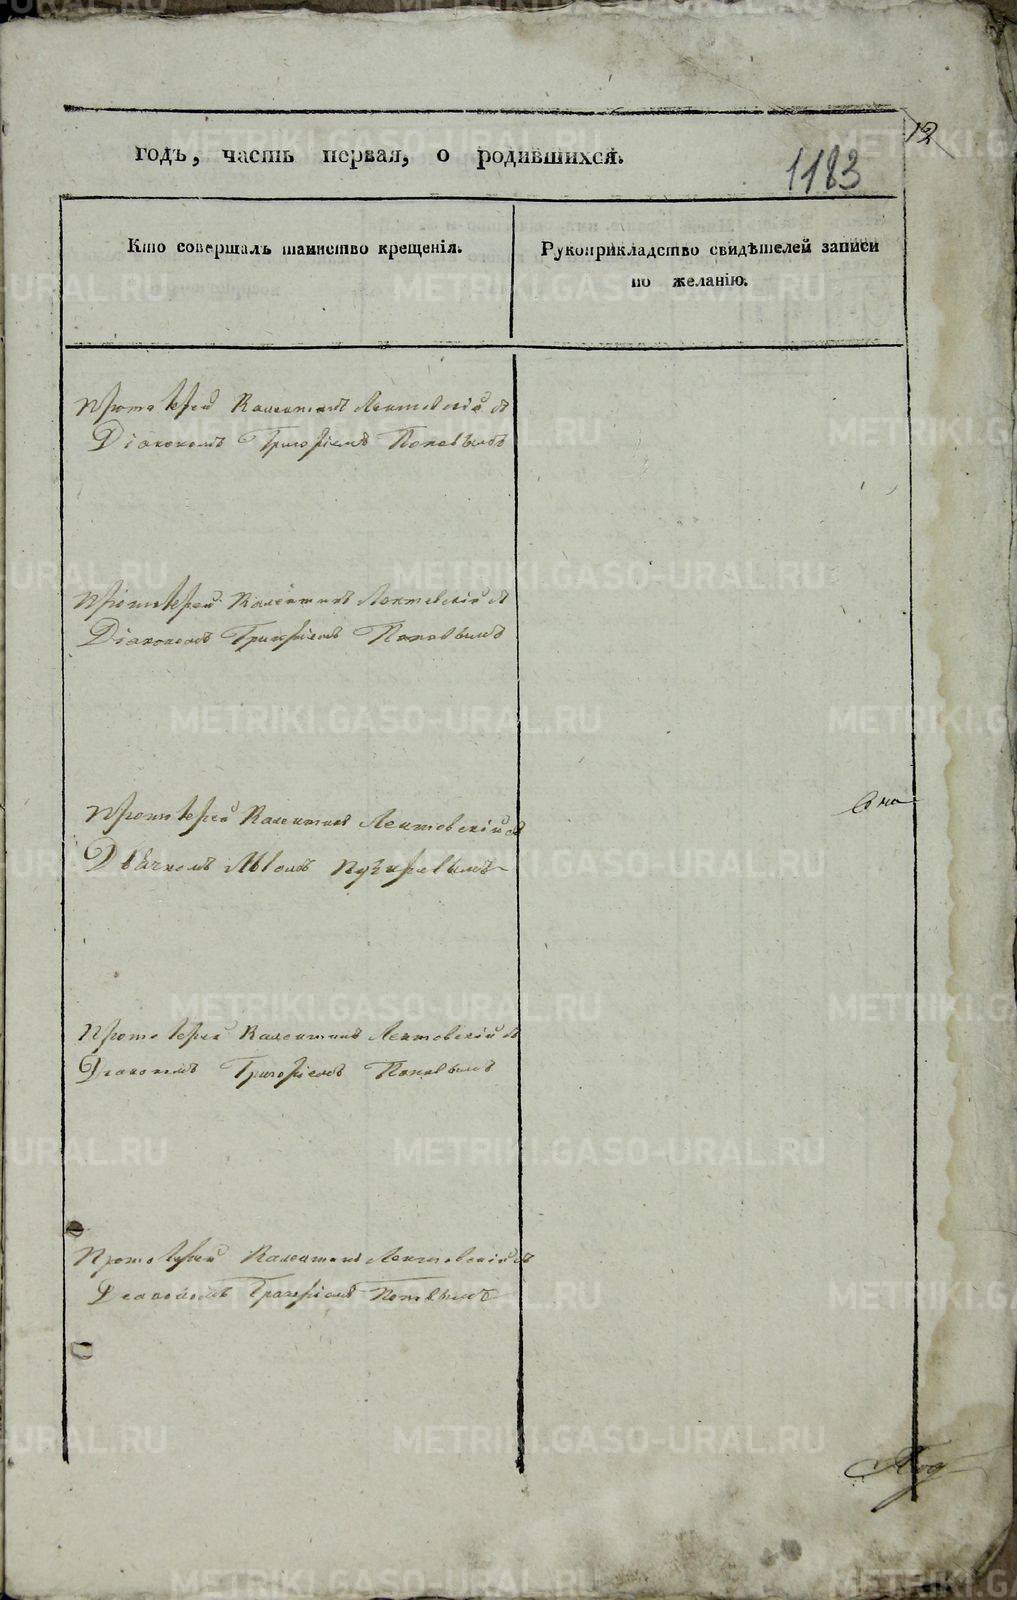 12
годъ, часть первая, о родившихся.
1183
Кто совершалъ таинство крещенія.
Рукоприкладство свидѣтелей записи
по желанію.
Протоіерей Валентинъ Лентовскій съ
Діакономъ Григоріемъ Поповымъ
Протоіерей Валентинъ Лентовскій съ
Діакономъ Григоріемъ Поповымъ
Протоіерей Валентинъ Лентовскій съ
Дьячкомъ Львомъ Пузыревымъ
Протоіерей Валентинъ Лентовскій съ
Діакономъ Григоріемъ Поповымъ
Протоіерей Валентинъ Лентовскій съ
Діакономъ Григоріемъ Поповымъ
METRIKI.GASO-URAL.RU